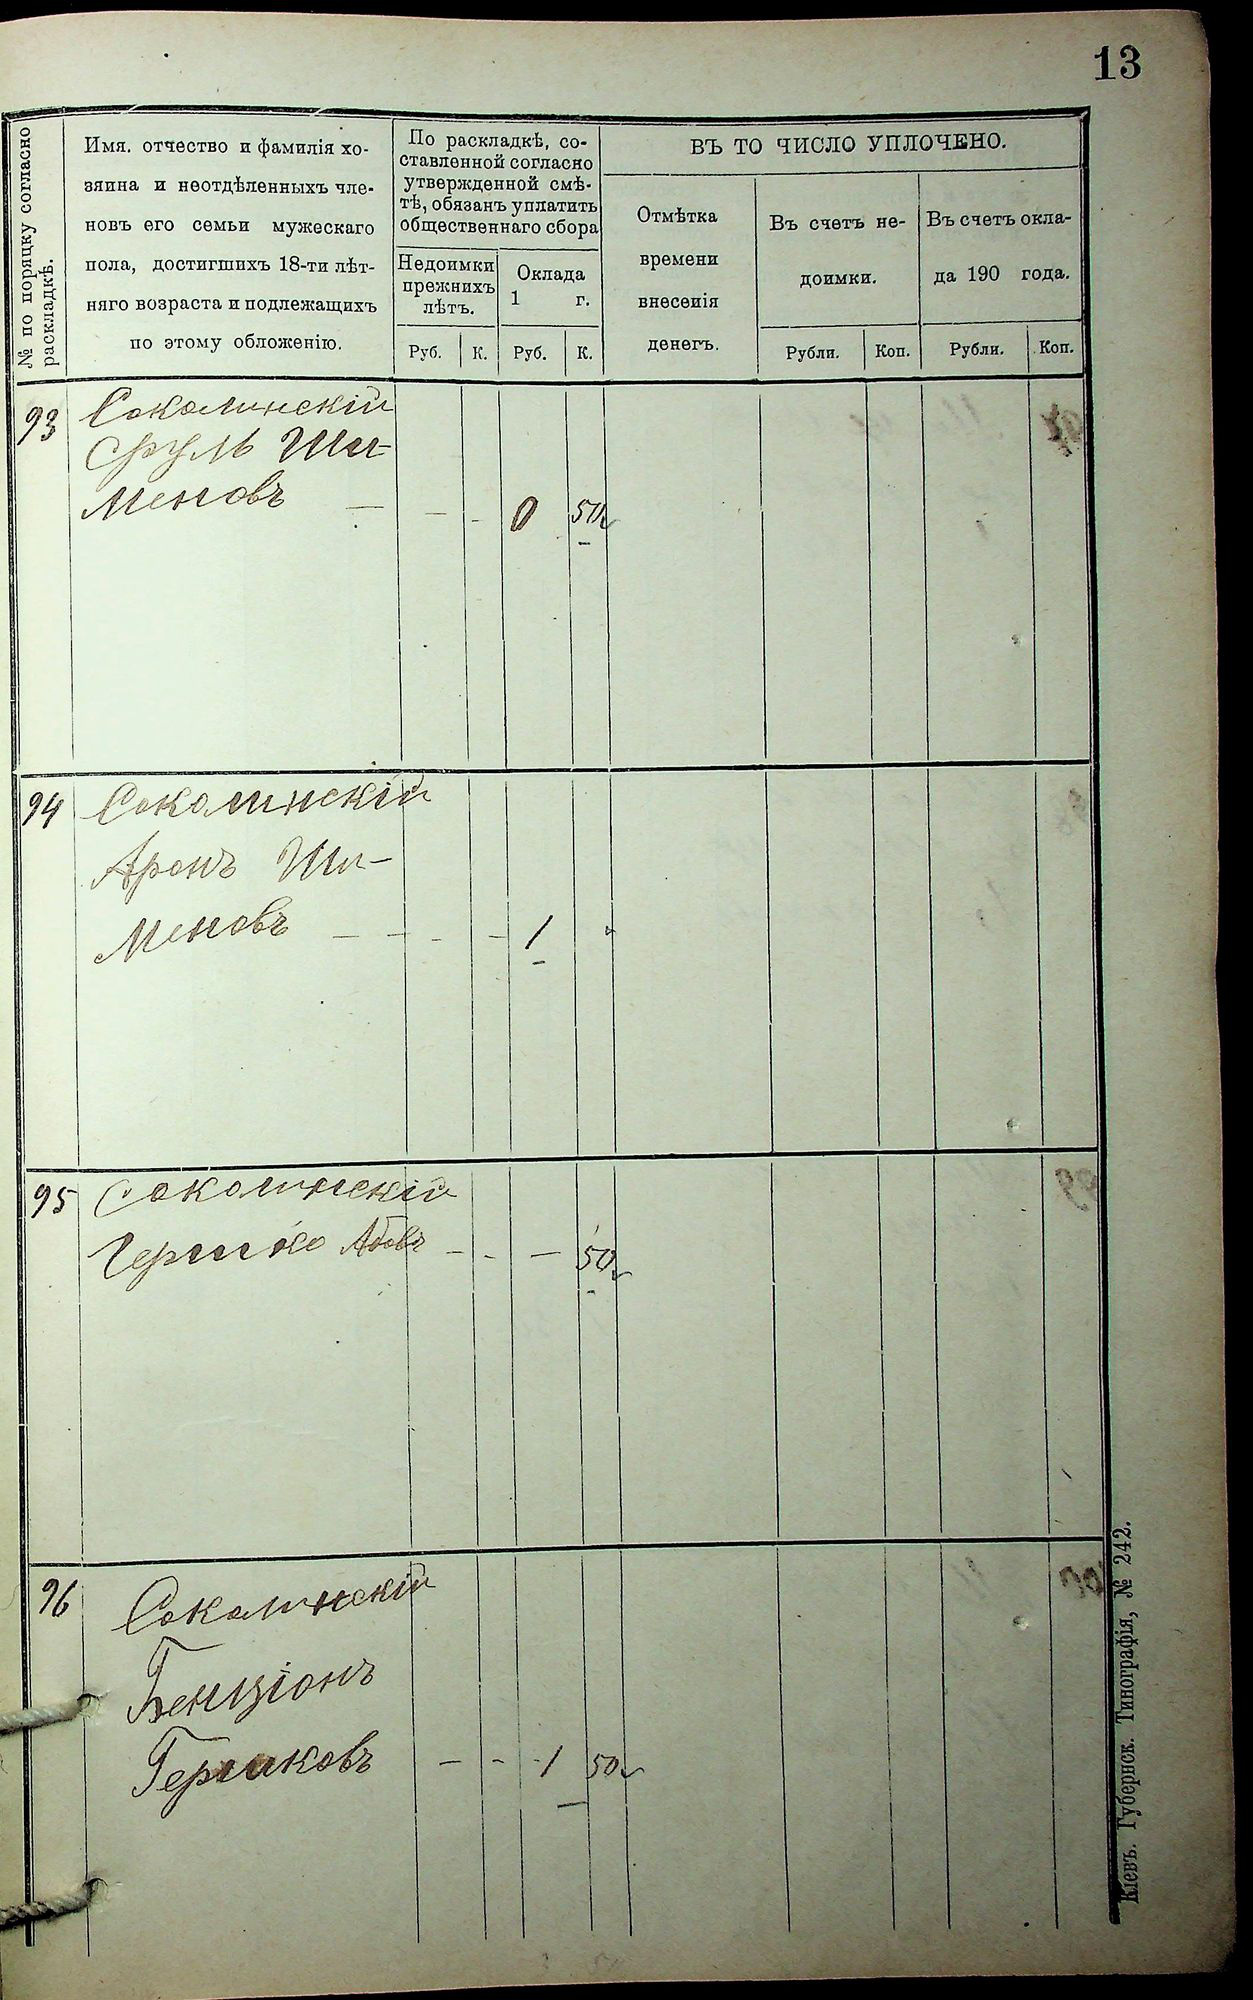 13
№ по порядку согласно
раскладкѣ.
Имя. отчество и фамилія хо-
зяина и неотдѣленныхъ чле-
новъ его семьи мужескаго
пола, достигшихъ 18-ти лѣт-
няго возраста и подлежащихъ
по этому обложенію.
По раскладкѣ, со-
ставленной согласно
утвержденной смѣ-
тѣ, обязанъ уплатить
общественнаго сбора
Недоимки
прежнихъ
лѣтъ.
Оклада
1 г.
Руб. К. Руб. К.
ВЪ ТО ЧИСЛО УПЛОЧЕНО.
Отмѣтка
времени
внесенія
денегъ.
Въ счетъ не-
доимки.
Рубли. Коп.
Въ счетъ окла-
да 190 года.
Рубли. Коп.
93 Соколинскій
Сруль Ши-
меновъ — — - 0 50
94 Соколинскій
Аронъ Ши-
меновъ — - - - 1
95 Соколинскій
Гершко Абовъ - - — 50
96 Соколинскій
Бенціонъ
Гершковъ — - - 1 50
Кіевъ. Губернск. Типографія, № 242.